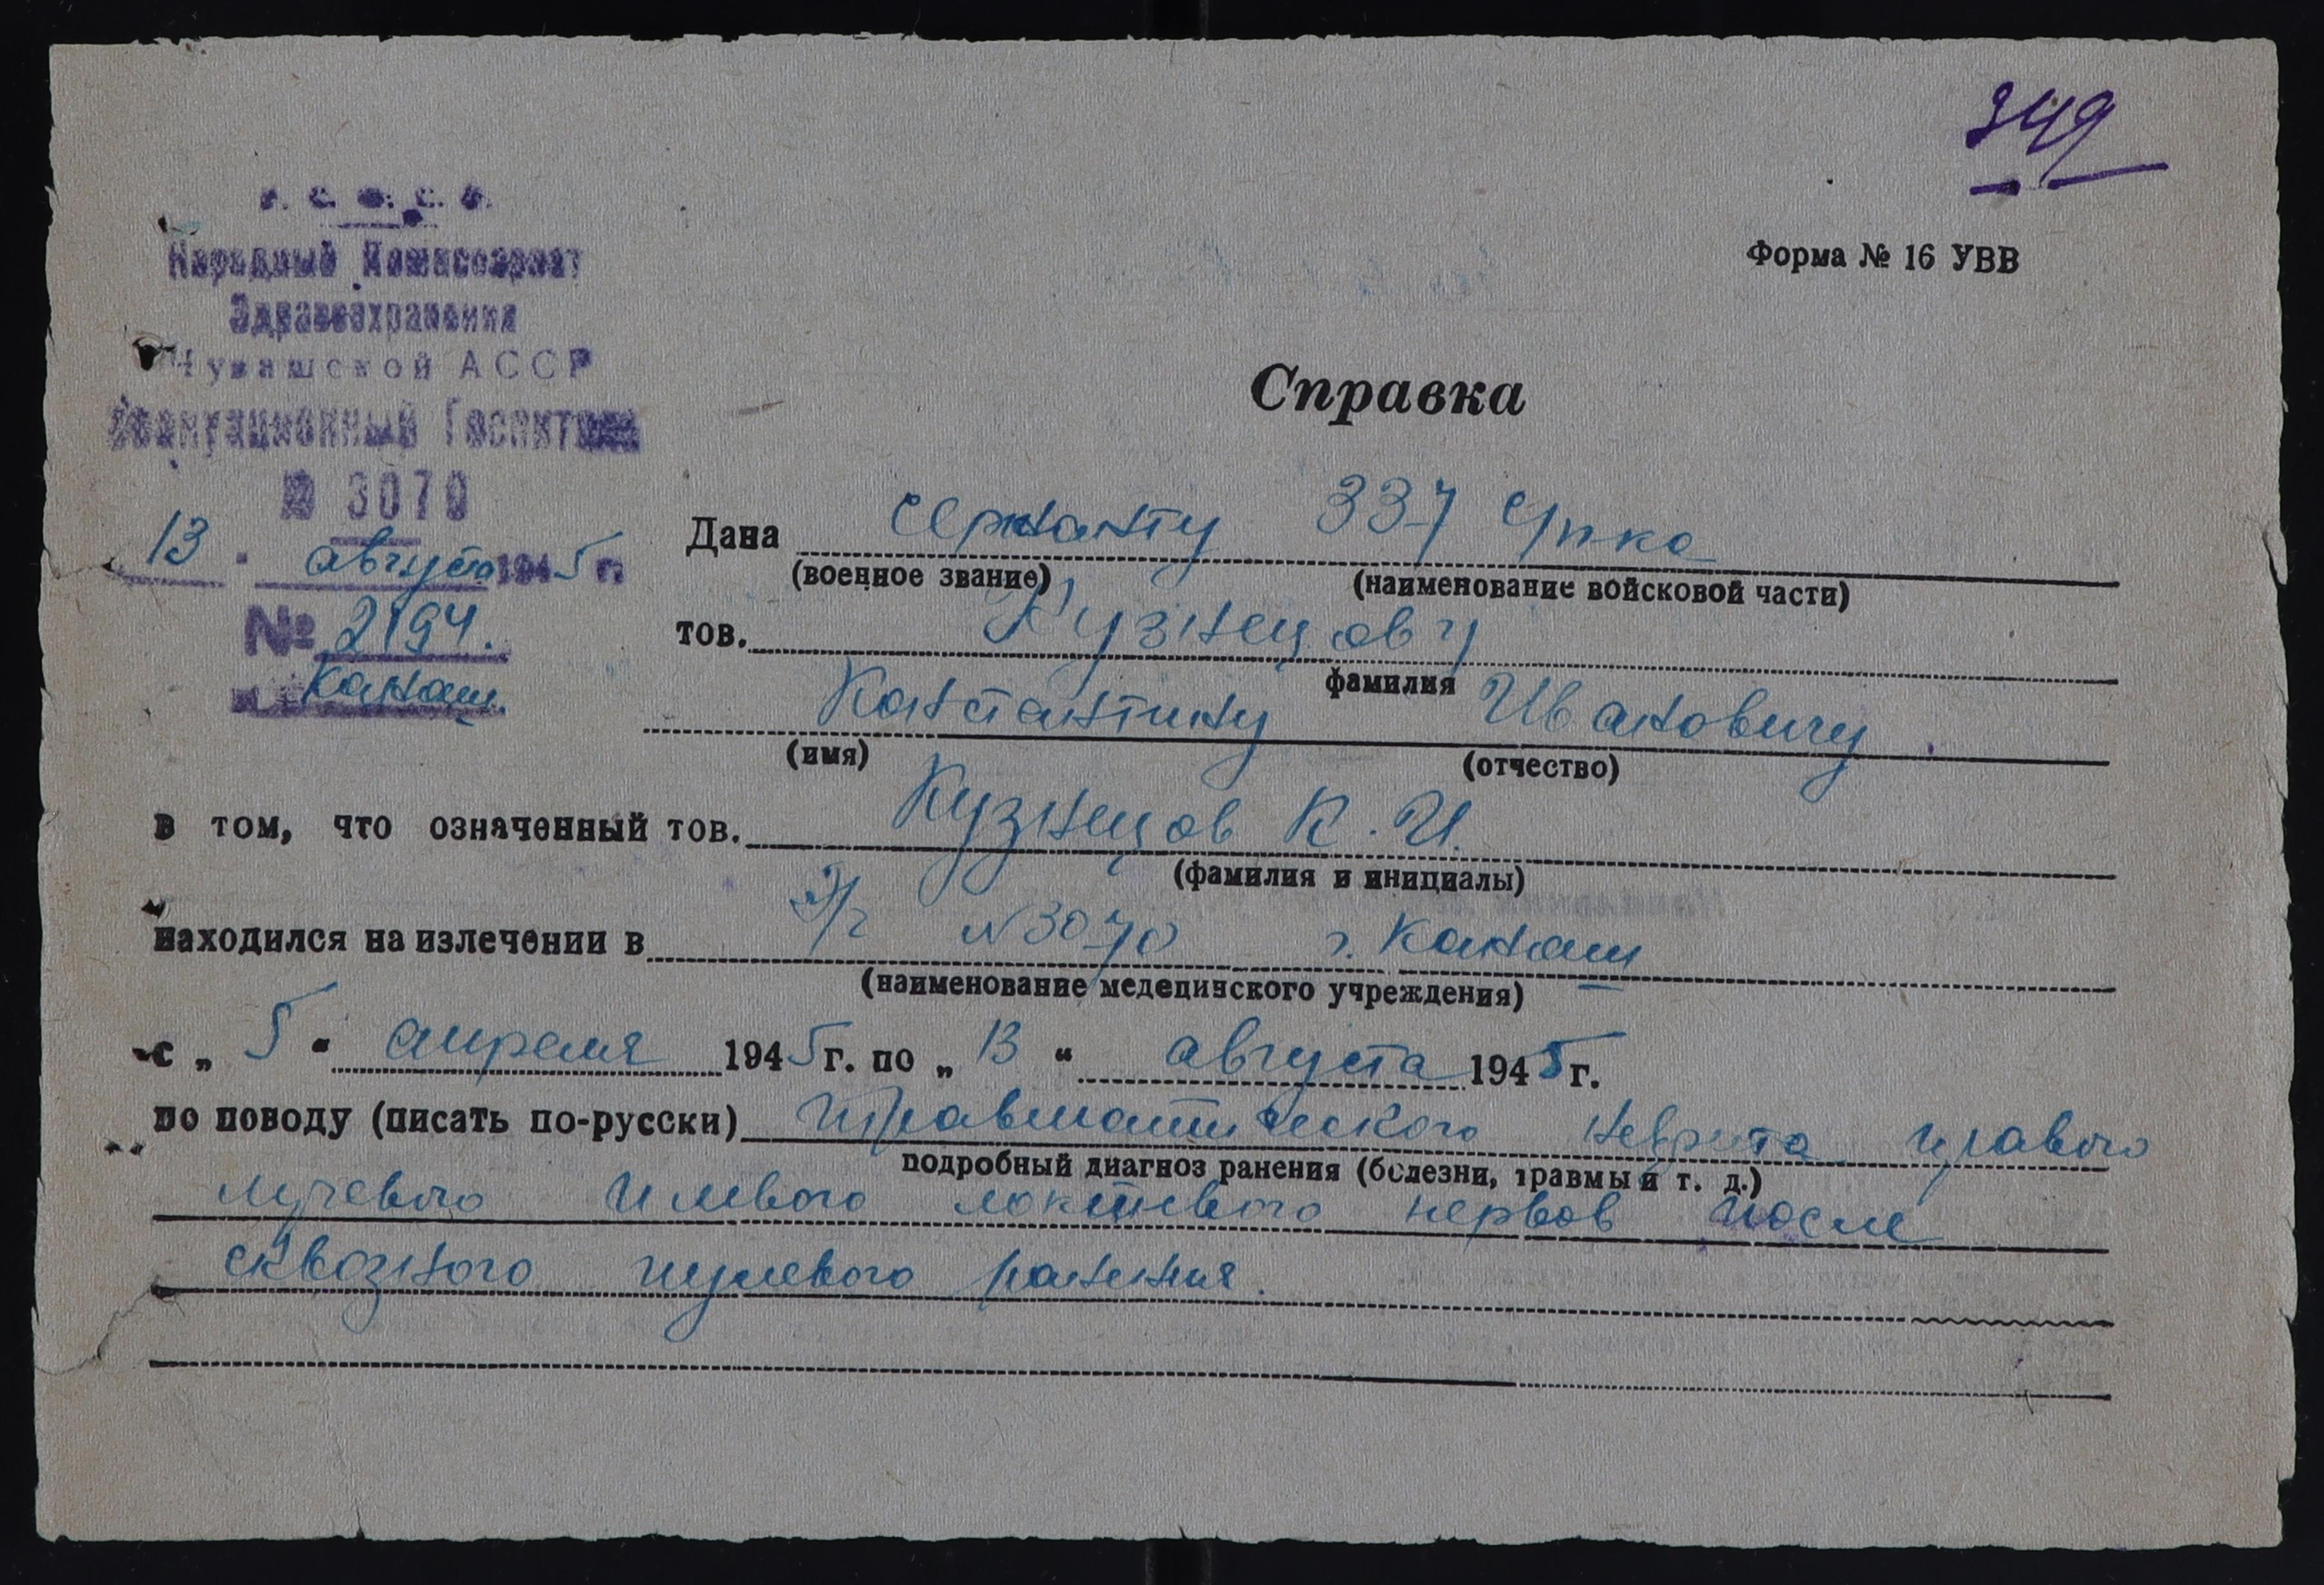 349
Форма № 16 УВВ
Р. С. Ф. С. Р.
Народный Комиссариат
Здравоохранения
Чувашской АССР
Эвакуационный Госпиталь
№ 3070
13 августа 1945 г.
№ 2194.
Канаш.
Справка
Дана сержанту 337
(военное звание) (наименование войсковой части)
тов. Кузнецову
фамилия
Константину Ивановичу
(имя) (отчество)
в том, что означенный тов. Кузнецов К. И.
(фамилия и инициалы)
находился на излечении в Э/г N 3070 г. Канаш
(наименование медецинского учреждения)
с „ 5 “ апреля 1945 г. по „ 13 “ августа 1945 г.
по поводу (писать по-русски) травматического неврита правого
подробный диагноз ранения (болезни, травмы и т. д.)
лучевого и левого локтевого нервов после
сквозного пулевого ранения.